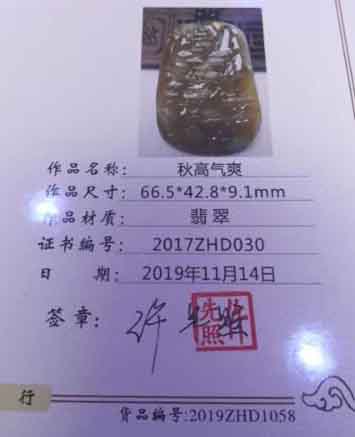 作品名称：秋高气爽
作品尺寸：66.5*42.8*9.1mm
作品材质：翡翠
证书编号：2017ZHD030
日　期：2019年11月14日
签章：
先照
行
货品编号:2019ZHD1058